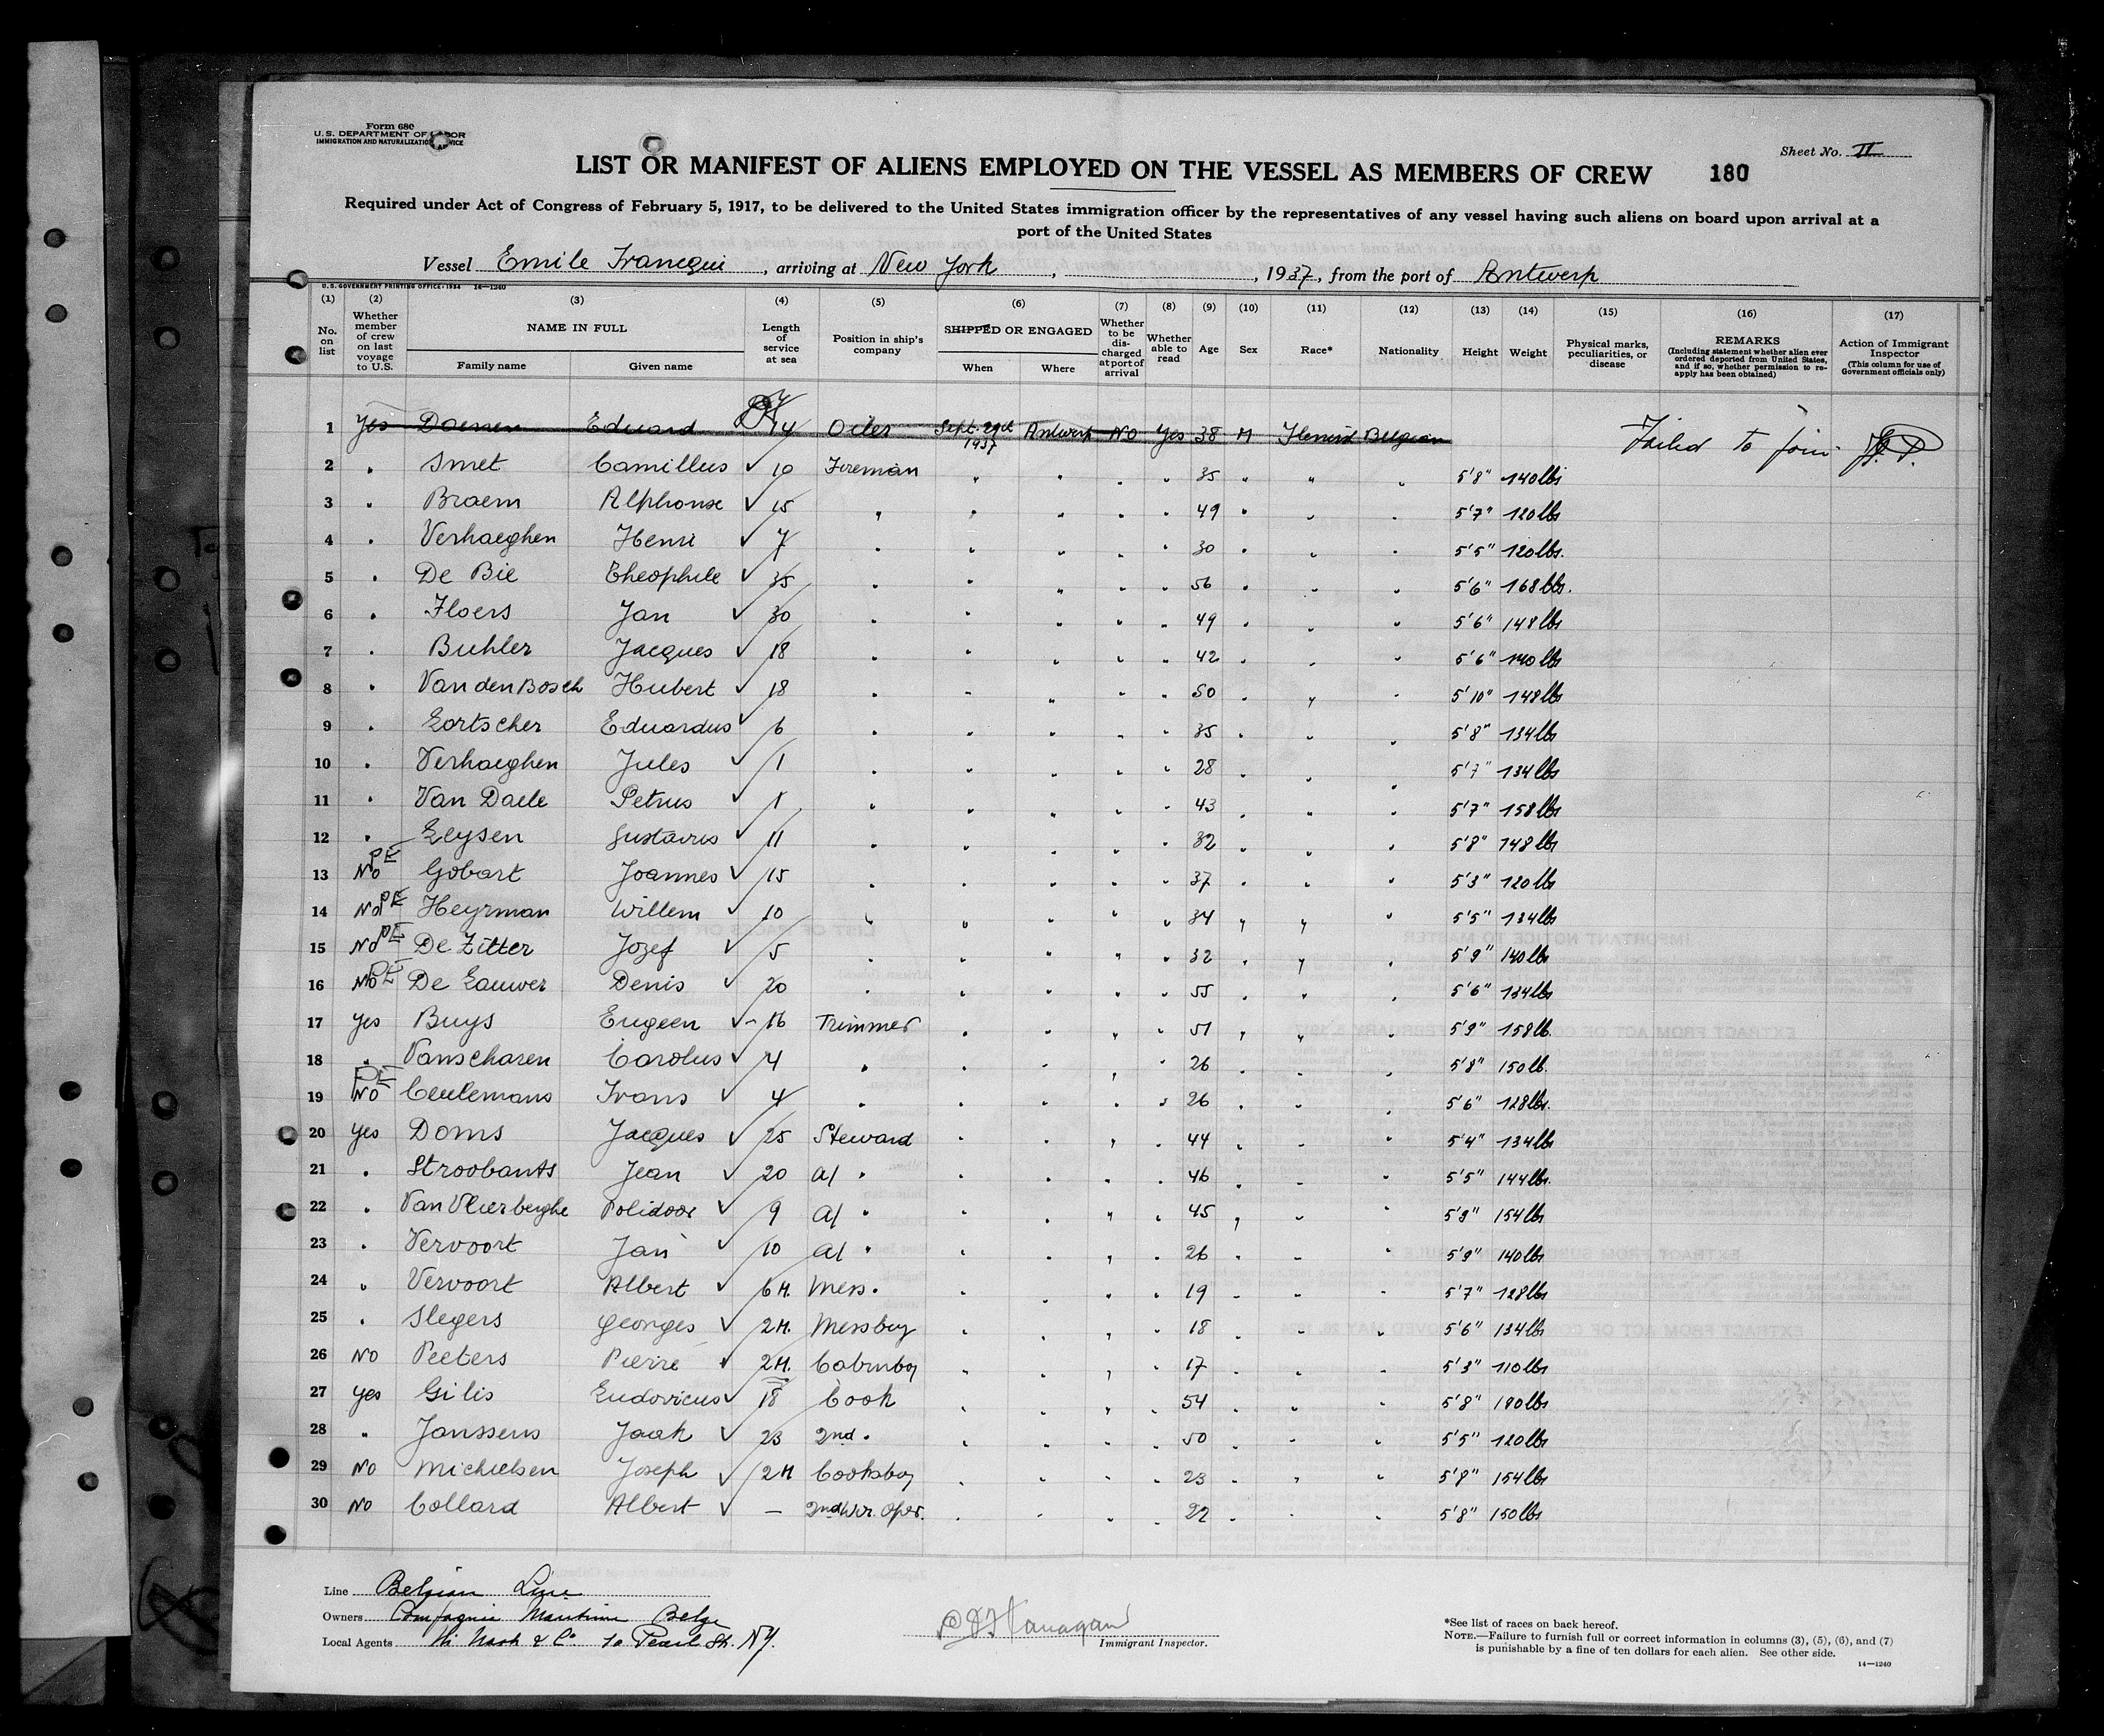 Form 680
U.S. DEPARTMENT OF LABOR
IMMIGRATION AND NATURALIZATION SERVICE
Sheet No. II
LIST OR MANIFEST OF ALIENS EMPLOYED ON THE VESSEL AS MEMBERS OF CREW 180
Required under Act of Congress of February 5, 1917, to be delivered to the United States immigration officer by the representatives of any vessel having such aliens on board upon arrival at a
port of the United States
Vessel Emile Francqui, arriving at New York, , 1937, from the port of Antwerp
U.S. GOVERNMENT PRINTING OFFICE: 1934 14—1240
(1) (2) (3) (4) (5) (6) (7) (8) (9) (10) (11) (12) (13) (14) (15) (16) (17)
No. on list
Whether member of crew on last voyage to U.S.
NAME IN FULL
Family name Given name
Length of service at sea
Position in ship's company
SHIPPED OR ENGAGED
When Where
Whether to be discharged at port of arrival
Whether able to read
Age
Sex
Race*
Nationality
Height
Weight
Physical marks, peculiarities, or disease
REMARKS
(Including statement whether alien ever ordered deported from United States, and if so, whether permission to re-apply has been obtained)
Action of Immigrant Inspector
(This column for use of Government officials only)
1 Yes Daenen Eduard 14 Oiler Sept. 29th 1937 Antwerp No Yes 38 M Flemish Belgian Failed to join
2 " Smet Camillus ✓ 10 Fireman " " " " 35 " " " 5'8" 140lbs
3 " Braem Alphonse ✓ 15 " " " " " 49 " " " 5'7" 120lbs
4 " Verhaeghen Henri ✓ 7 " " " " " 30 " " " 5'5" 120lbs.
5 " De Bie Theophile ✓ 35 " " " " " 56 " " " 5'6" 168lbs.
6 " Floers Jan ✓ 30 " " " " " 49 " " " 5'6" 148lbs
7 " Buhler Jacques ✓ 18 " " " " " 42 " " " 5'6" 140lbs
8 " Van den Bosch Hubert ✓ 18 " " " " " 50 " " " 5'10" 148lbs
9 " Lortscher Eduardus ✓ 6 " " " " " 35 " " " 5'8" 134lbs
10 " Verhaeghen Jules ✓ 1 " " " " " 28 " " " 5'7" 134lbs
11 " Van Daele Petrus ✓ 1 " " " " " 43 " " " 5'7" 158lbs
12 " Leysen Gustavus ✓ 11 " " " " " 32 " " " 5'8" 148lbs
13 No PE Gobart Joannes ✓ 15 " " " " " 37 " " " 5'3" 120lbs
14 No PE Heyrman Willem ✓ 10 " " " " " 34 " " " 5'5" 134lbs
15 No PE De Zitter Jozef ✓ 5 " " " " " 32 " " " 5'9" 140lbs
16 No PE De Lauwer Denis ✓ 20 " " " " " 55 " " " 5'6" 134lbs
17 Yes Buys Eugeen ✓ 16 Trimmer " " " " 51 " " " 5'9" 158lb.
18 " Vanscharen Carolus ✓ 4 " " " " " 26 " " " 5'8" 150lb.
19 No PE Ceulemans Frans ✓ 4 " " " " " 26 " " " 5'6" 128lbs.
20 Yes Doms Jacques ✓ 25 Steward " " " " 44 " " " 5'4" 134lbs
21 " Stroobants Jean ✓ 20 A/ " " " " " 46 " " " 5'5" 144lbs.
22 " Van Vlierberghe Polidoor ✓ 9 A/ " " " " " 45 " " " 5'9" 154lbs
23 " Vervoort Jan ✓ 10 A/ " " " " " 26 " " " 5'9" 140lbs
24 " Vervoort Albert ✓ 6 M. Mess. " " " " " 19 " " " 5'7" 128lbs
25 " Slegers Georges ✓ 2 M. Messboy " " " " 18 " " " 5'6" 134lbs
26 No Peeters Pierre ✓ 2 M. Cabinboy " " " " 17 " " " 5'3" 110lbs
27 Yes Gilis Ludovicus ✓ 18 Cook " " " " 54 " " " 5'8" 180lbs
28 " Janssens Jaak ✓ 23 2nd " " " " " 50 " " " 5'5" 120lbs
29 No Michielsen Joseph ✓ 2 M Cooksboy " " " " 23 " " " 5'8" 154lbs
30 No Collard Albert ✓ — 2nd Wir. Oper. " " " " 22 " " " 5'8" 150lbs
Line Belgian Line
Owners Compagnie Maritime Belge
Local Agents Pearl Str. NY.
Flanagan
Immigrant Inspector.
*See list of races on back hereof.
NOTE.—Failure to furnish full or correct information in columns (3), (5), (6), and (7)
is punishable by a fine of ten dollars for each alien. See other side.
14—1240